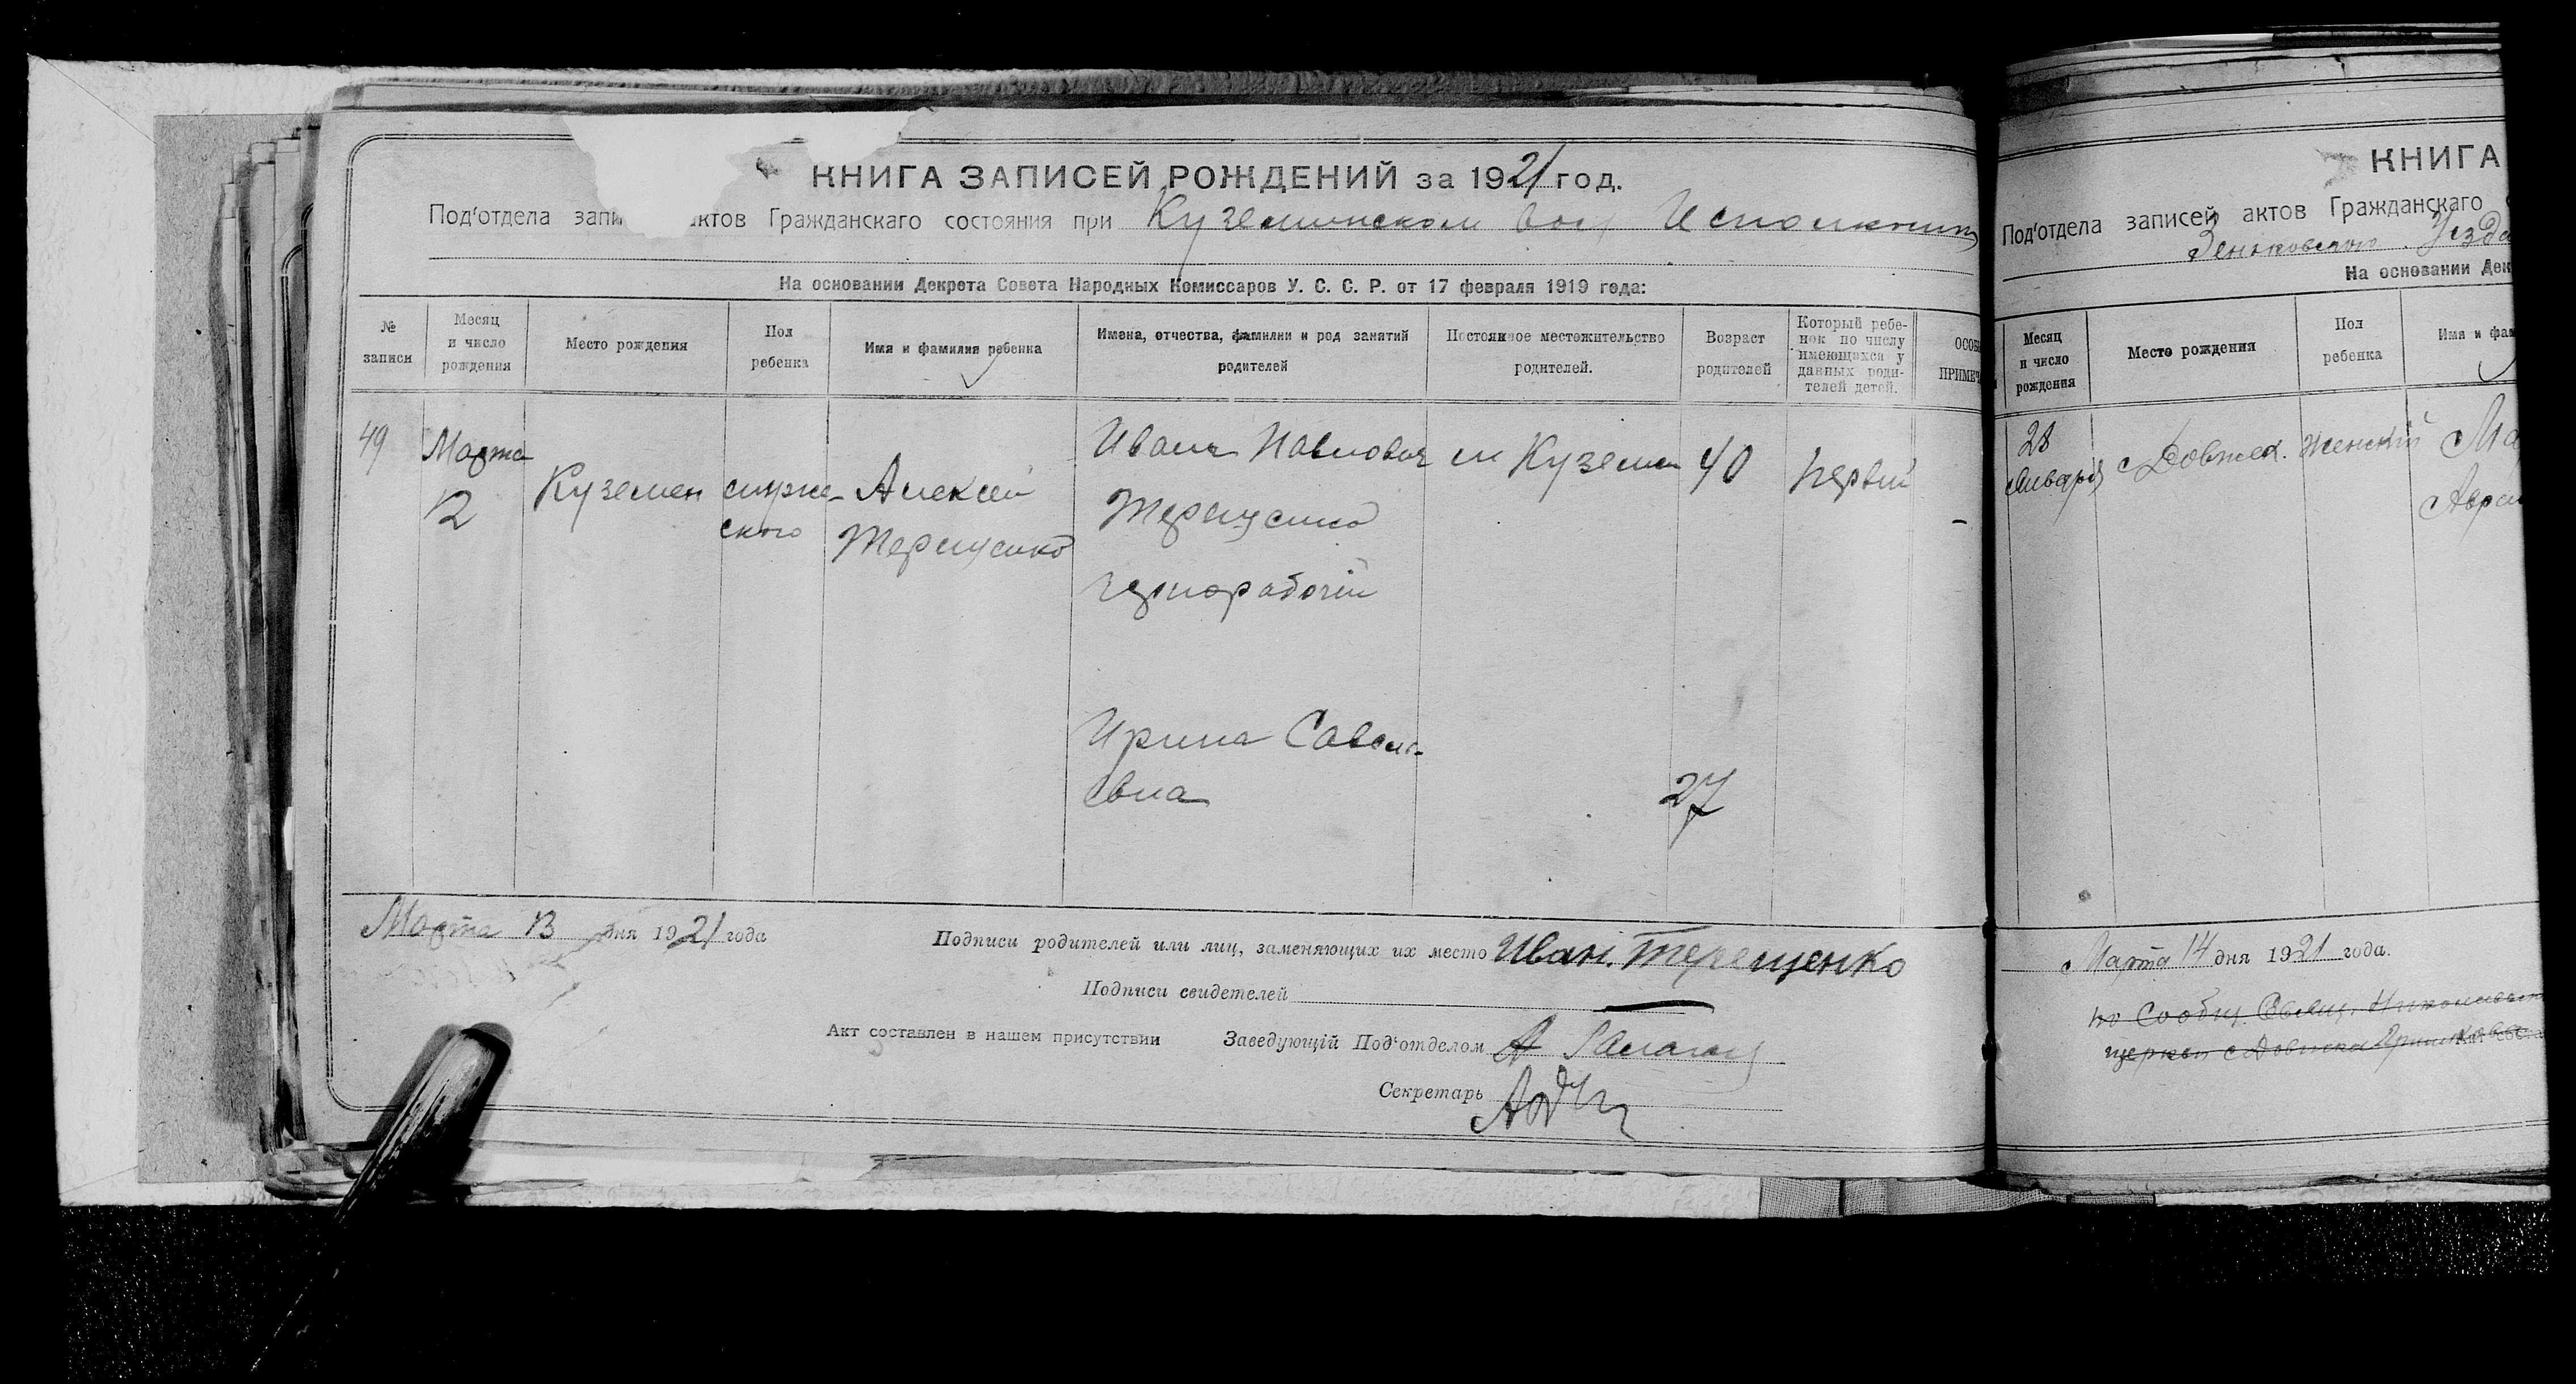 КНИГА ЗАПИСЕЙ РОЖДЕНИЙ за 1921 год.
Под'отдела запи актов Гражданскаго состояния при Куземинском вол Исполкоми
На основании Декрета Совета Народных Комиссаров У. С. С. Р. от 17 февраля 1919 года:
№ записи
Месяц и число рождения
Место рождения
Пол ребенка
Имя и фамилия ребенка
Имена, отчества, фамилии и род занятий родителей
Постоянное местожительство родителей.
Возраст родителей
Который ребе-
нок по числу
имеющихся у
данных роди-
телей детей.
ОСОБ
ПРИМЕЧ
49
Марта
12
Куземен
муже-
ского
Алексей
Терещенко
Иван Павлович
Терещенко
чернорабочій
м Куземен
40
первый
Ирина Савель-
евна
27
Марта 13 дня 1921 года
Подписи родителей или лиц, заменяющих их место Иван. Терещенко
Подписи свидетелей
Акт составлен в нашем присутствии
Заведующій Под'отделом А
Секретарь
КНИГА
Под'отдела записей актов Гражданскаго
Зеньковского Уезда
На основании Дек
Месяц
и число
рождения
Место рождения
Пол
ребенка
Имя и фам
28
Января
с Довжек.
Женскій
Ма
Аврам
Марта 14 дня 1921 года.
по Сообщ. Свящ. Николаевск
церкви с Довжка